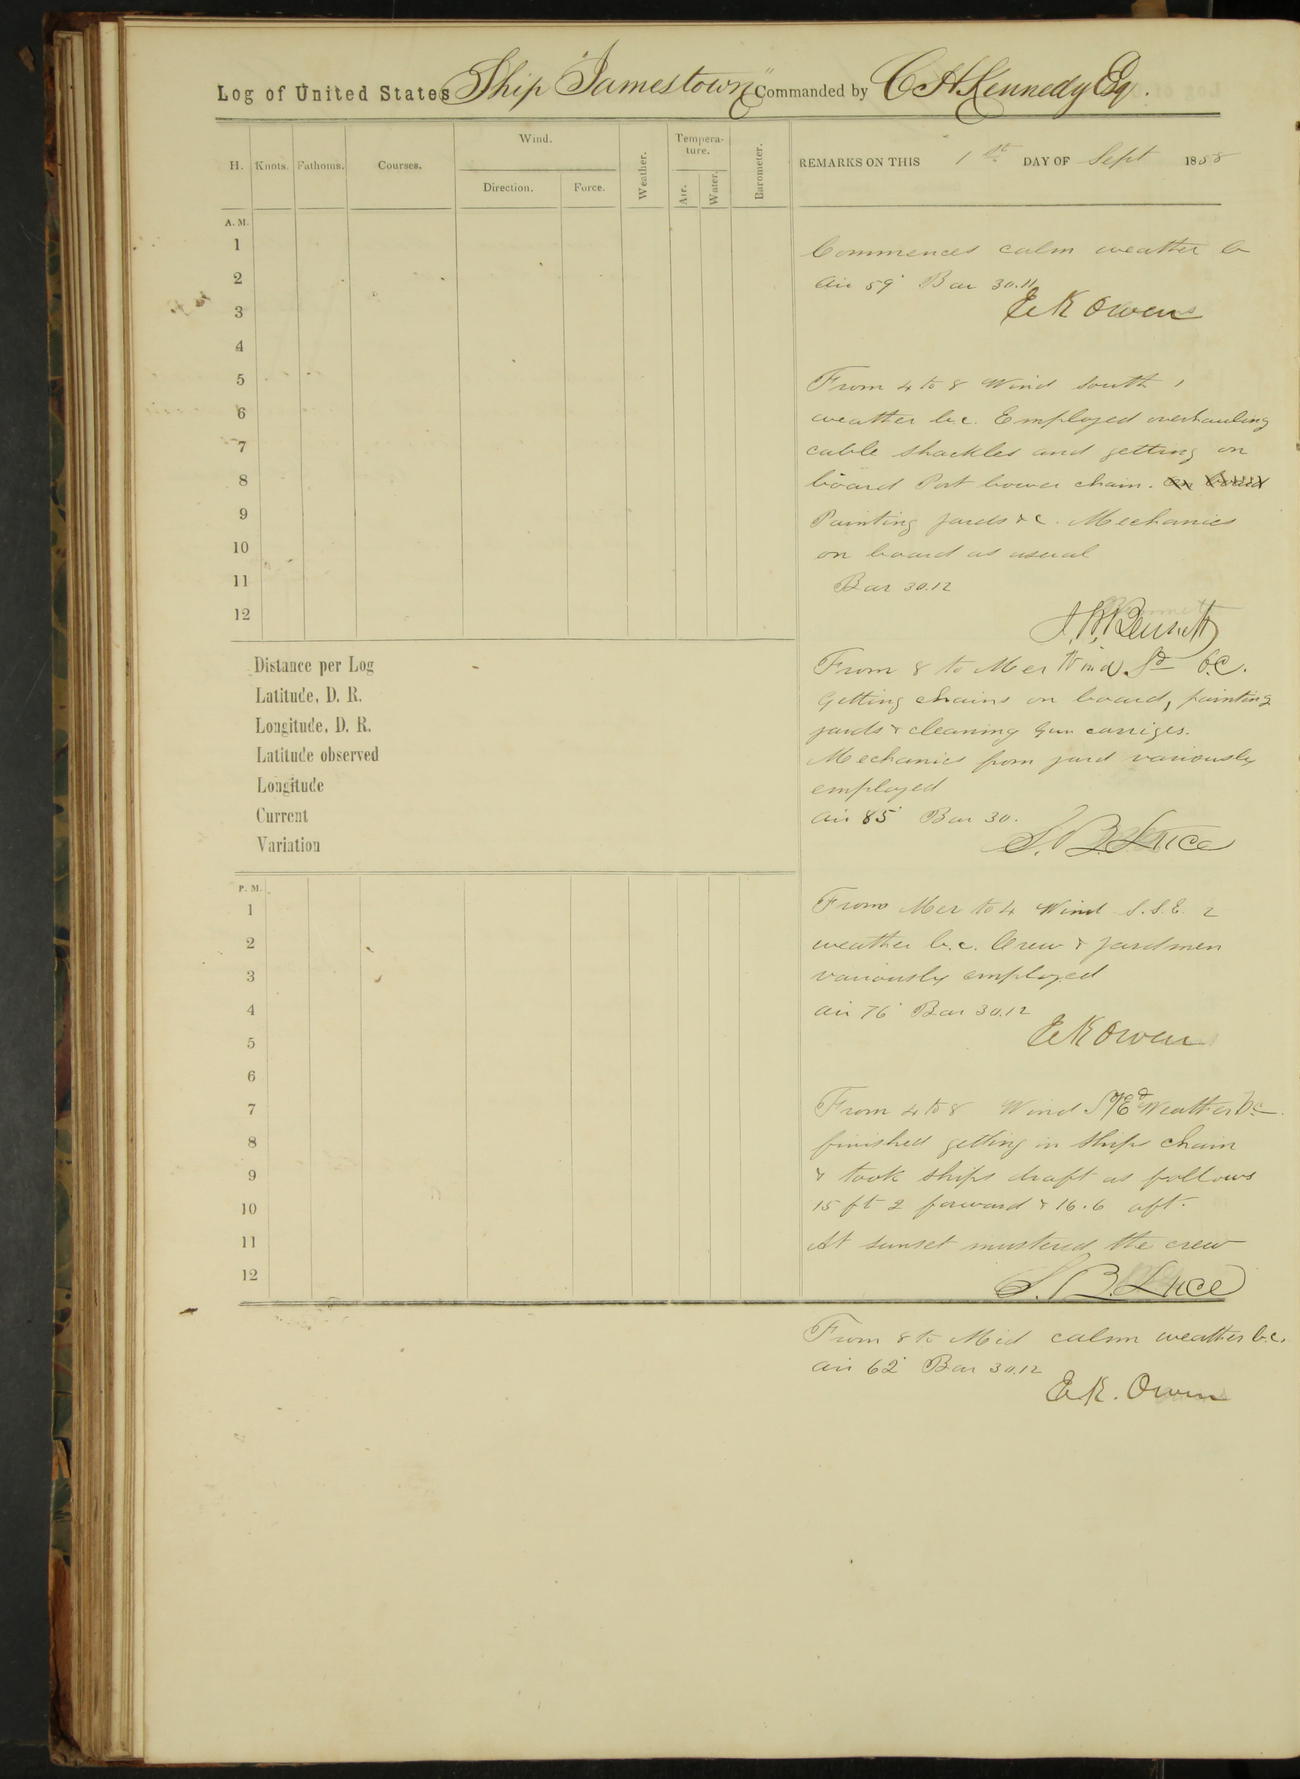 Log of United States Ship "Jamestown" Commanded by C H Kennedy Esq.
H. Knots. Fathoms. Courses. Wind. Direction. Force. Weather. Tempera-ture. Air. Water. Barometer.
REMARKS ON THIS 1st DAY OF Sept 1858
A. M.
1
2
3
4
5
6
7
8
9
10
11
12
Commences calm weather b
Air 59° Bar 30.11
E K Owen
From 4 to 8 Wind South 1
weather b.c. Employed overhauling
cable shackles and getting on
board Port bower chain. on board
Painting yards &c. Mechanics
on board as usual
Bar 30.12
J. W. Bennett
From 8 to Mer Wind Sd b.c.
Getting chains on board, painting
yards & cleaning Gun carriges.
Mechanics from yard variously
employed
Air 85° Bar 30.
S. B. Luce
Distance per Log
Latitude, D. R.
Longitude, D. R.
Latitude observed
Longitude
Current
Variation
P. M.
1
2
3
4
5
6
7
8
9
10
11
12
From Mer to 4 Wind S.S.E. 2
weather b.c. Crew & yardmen
variously employed
Air 76° Bar 30.12
E K Owen
From 4 to 8 Wind Weather bc.
finished getting in ships chain
& took ships draft as follows
15 ft 2 forward & 16.6 aft.
At sunset mustered the crew
S. B. Luce
From 8 to Mid calm weather b.c.
Air 62° Bar 30.12
E. K. Owen